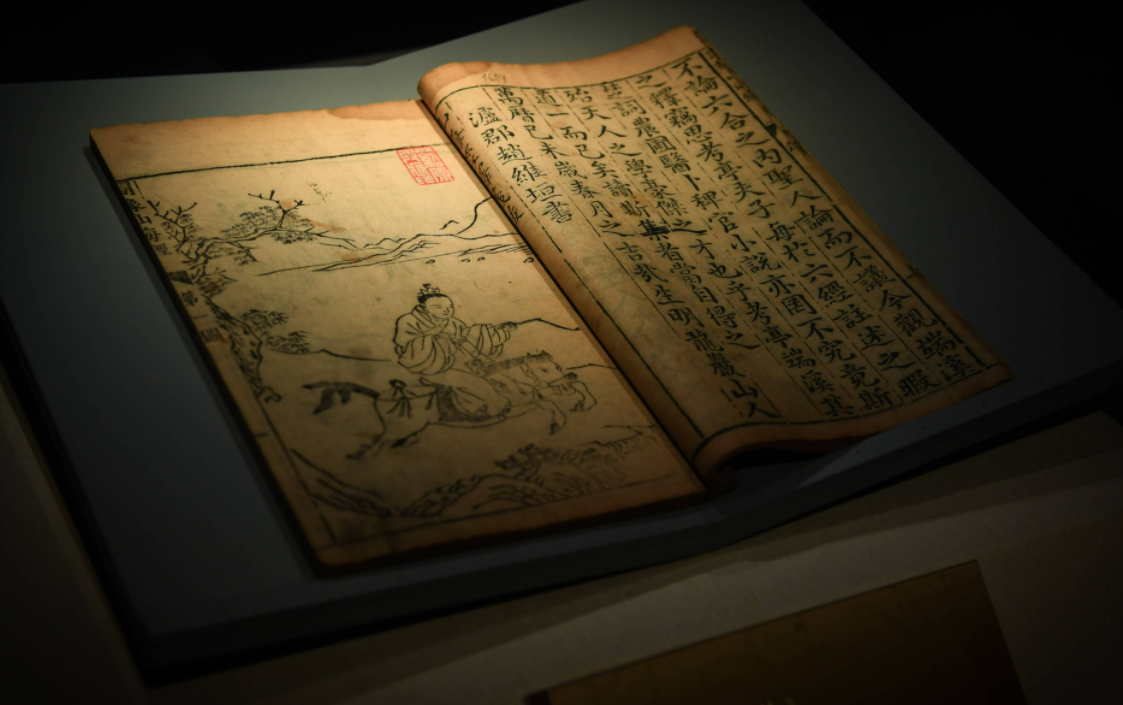 不論六合之內聖人論而不議今觀端溪
之釋竊思考亭夫子每於六經註述之暇
詞農圃醫卜稗官小說亦罔不究竟斯
殆天人之學豪傑之才也乎考亭端溪其
道一而已矣讀斯集者當自得之
萬曆己未歲春月之吉生明龍巖山人
瀘郡趙維垣書